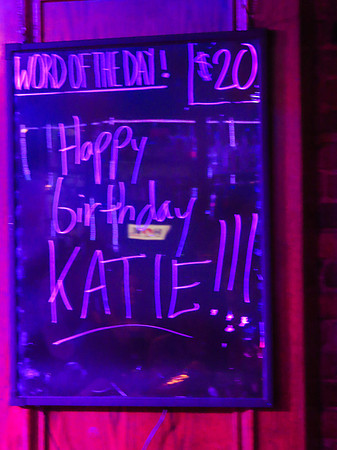 WORD OF THE DAY! $20
Happy
birthday
KATIE!!!